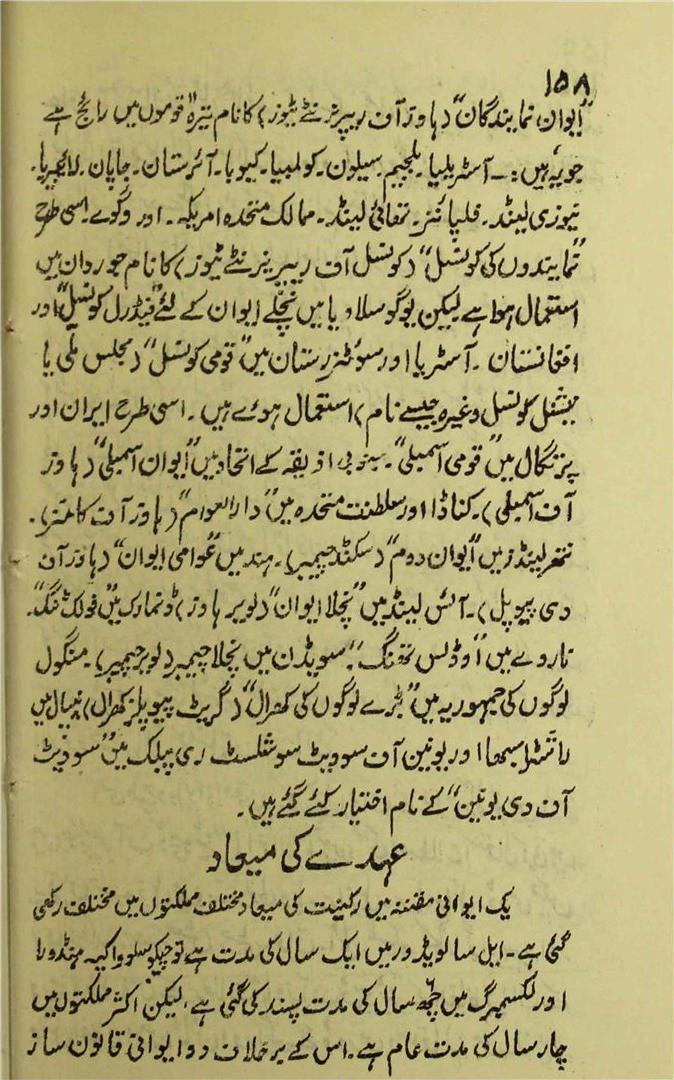 ۱۵۸
"ایوان نمایندگان" (ہاوز آف ریپرزنٹے ٹیوز) کا نام تیرہ قوموں میں رائج ہے
جو یہ ہیں:۔ آسٹریلیا۔ بلجیم۔ سیلون۔ کولمبیا۔ کیوبا۔ آئرستان۔ جاپان۔ لائبیریا۔
نیوزی لینڈ۔ فلپائنز۔ تھائی لینڈ۔ ممالک متحدہ امریکہ۔ اور وگوے۔ اسی طرح
"نمایندوں کی کونسل" (کونسل آف ریپریزنٹے ٹیوز) کا نام جوردان میں
استعمال ہوا ہے لیکن یوگوسلاویا میں نچلے ایوان کے لئے "فیڈرل کونسل" اور
افغانستان۔ آسٹریا اور سوئٹزرستان میں "قومی کونسل" (مجلس ملی یا
نیشنل کونسل وغیرہ جیسے نام) استعمال ہوئے ہیں۔ اسی طرح ایران اور
پرتگال میں "قومی اسمبلی"۔ جنوبی افریقہ کے اتحاد میں "ایوان اسمبلی" (ہاوز
آف اسمبلی)۔ کناڈا اور سلطنت متحدہ میں "دارالعوام" (ہاوز آف کامنز)۔
نتھرلینڈز میں "ایوان دوم" (سکنڈ چیمبر)۔ ہند میں "عوامی ایوان" (ہاوز آف
دی پیوپل)۔ آئس لینڈ میں "نچلا ایوان" (لویر ہاوز) ڈنمارک میں "فولک ٹنگ"۔
ناروے میں "اوڈلس تھنگ"۔ سویڈن میں نچلا چیمبر (لویر چیمبر)۔ منگول
لوگوں کی جمہوریہ میں "بڑے لوگوں کی کھرال" (گریٹ پیوپلز کھرال) نیپال میں
راشٹرا سبھا اور یونین آف سوویٹ سوشلسٹ ری پبلک میں "سوویٹ
آف دی یونین" کے نام اختیار کئے گئے ہیں۔
عہدے کی میعاد
یک ایوانی مقننہ میں رکنیت کی میعاد مختلف مملکتوں میں مختلف رکھی
گئی ہے۔ ایل سالویڈور میں ایک سال کی مدت ہے تو چیکوسلوواکیہ ہنڈورا
اور لکسمبرگ میں چھ سال کی مدت پسند کی گئی ہے، لیکن اکثر مملکتوں میں
چار سال کی مدت عام ہے۔ اس کے برخلاف دو ایوانی قانون ساز